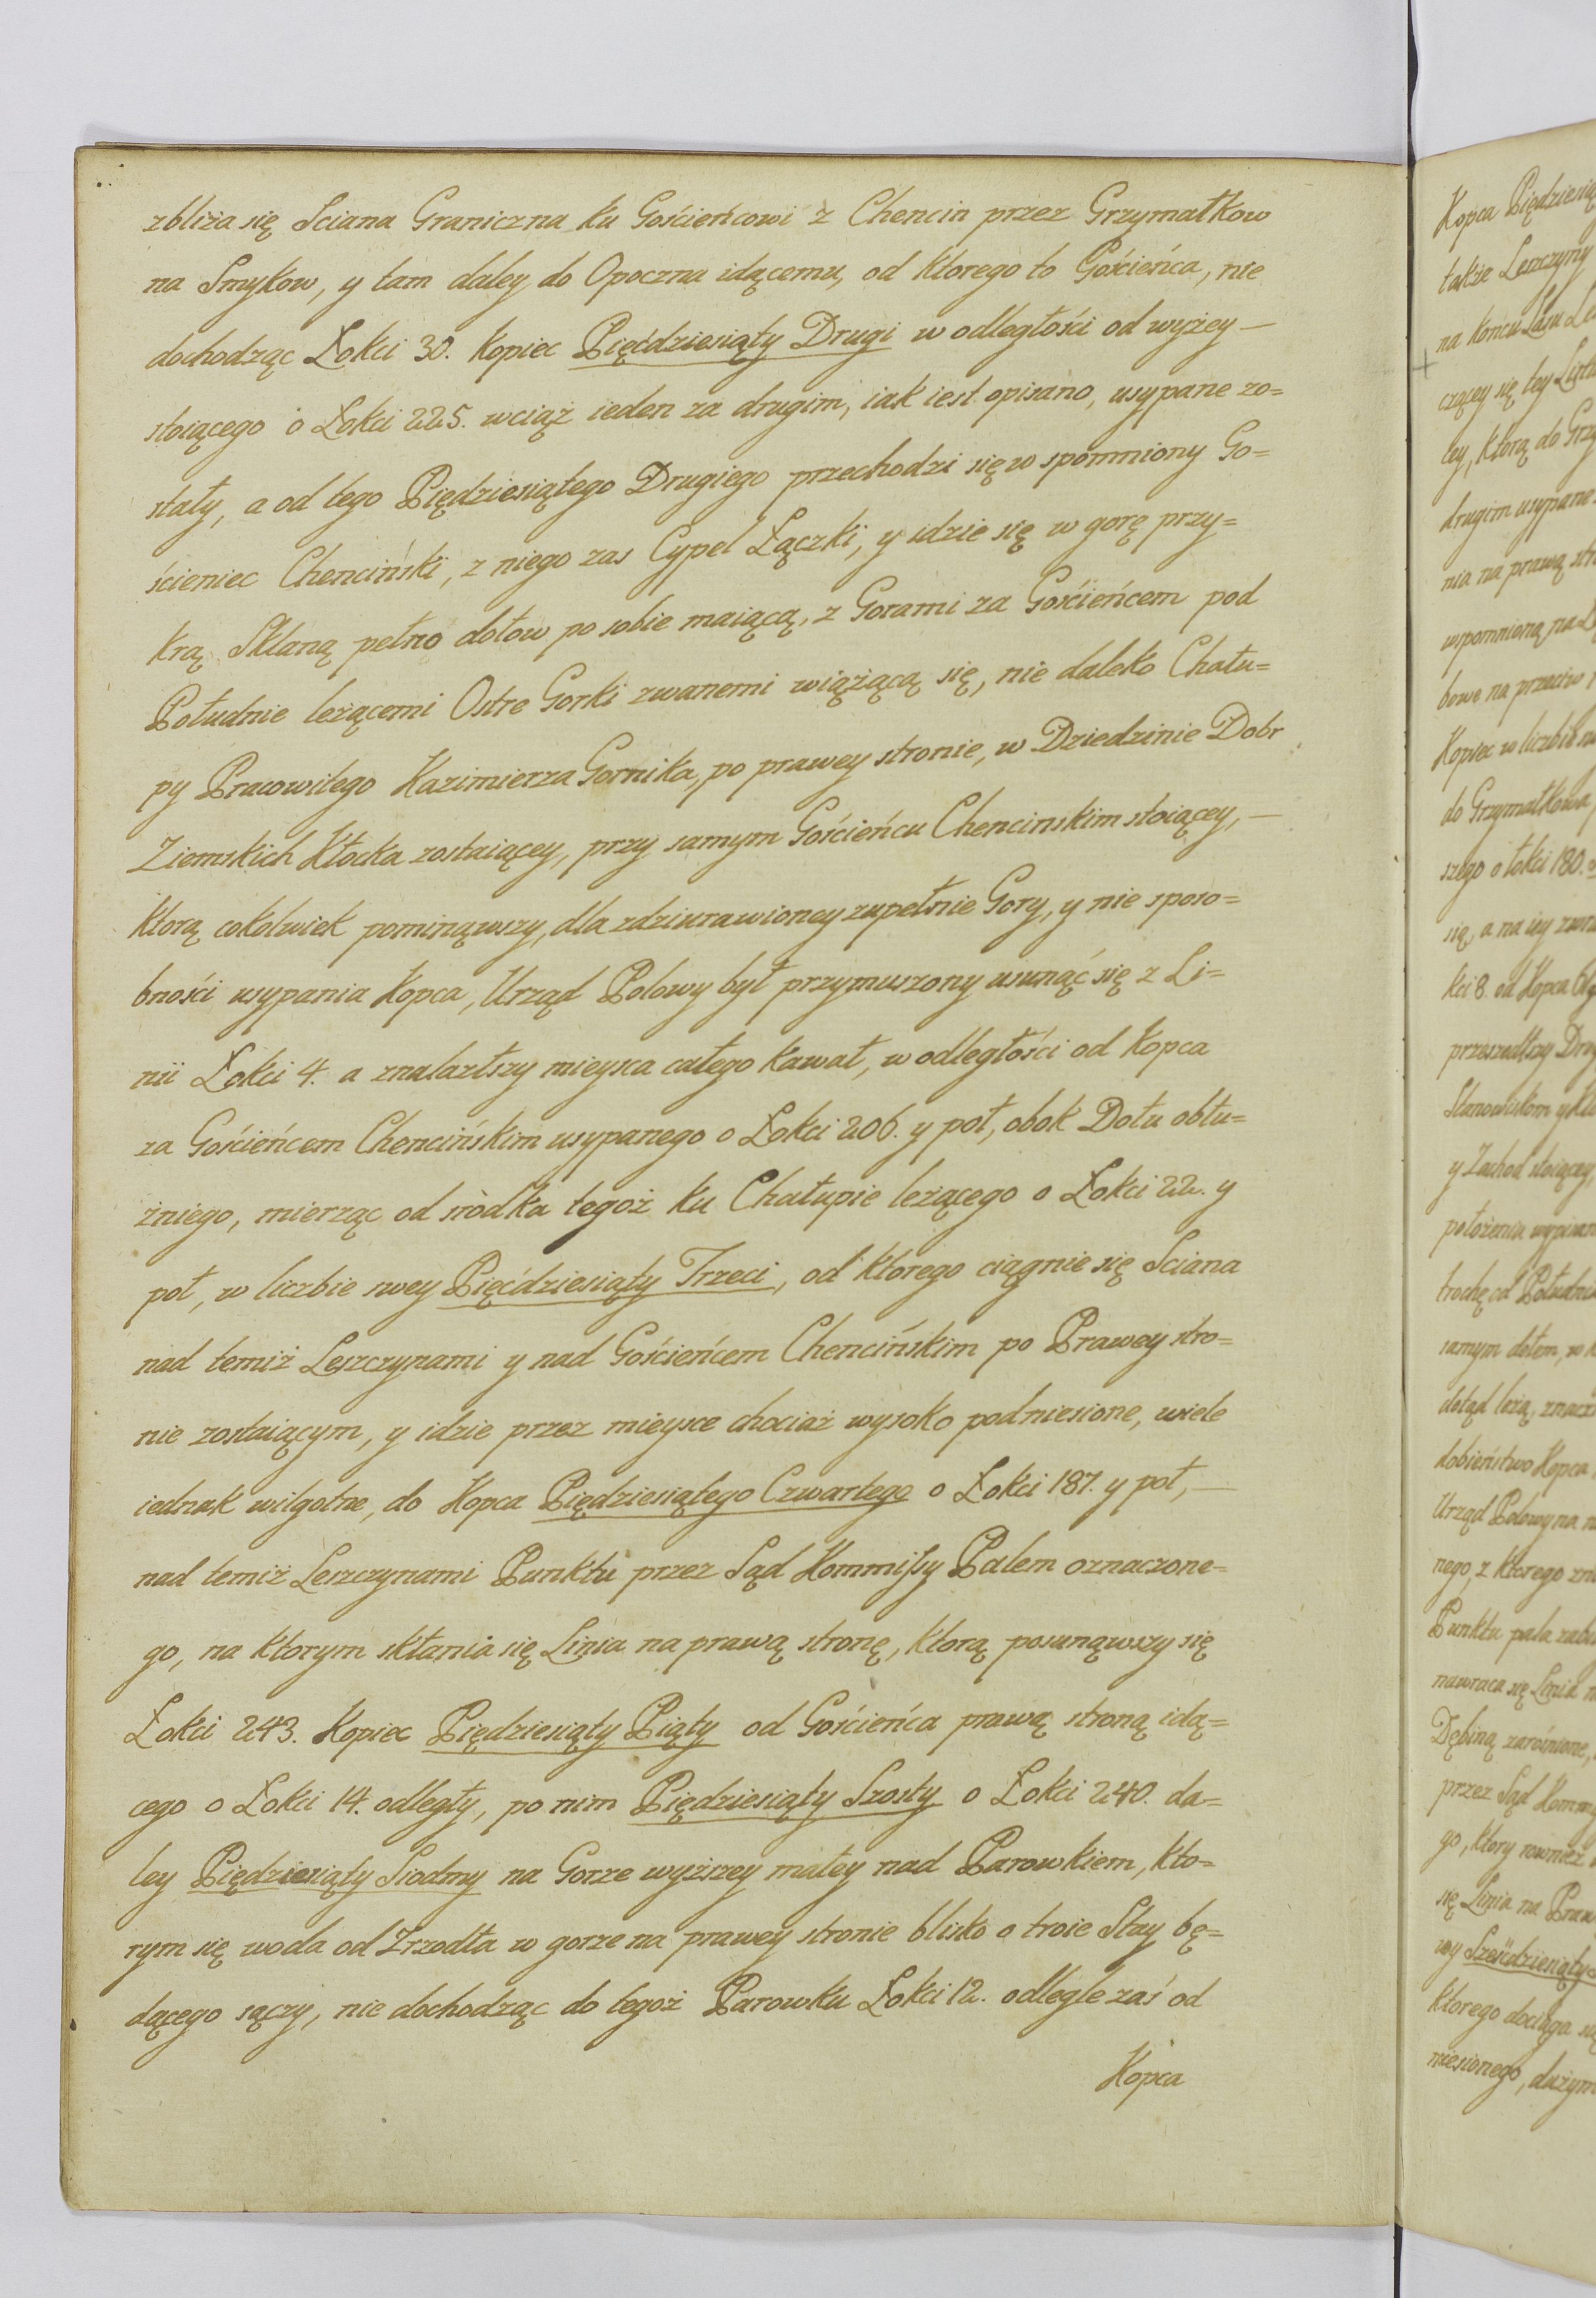 zbliża się Sciana Graniczna ku Gościeńcowi z Chencin przez Grzymałkow
na Smykow, y tam daley do Opoczna idącemu, od ktorego to Gościeńca, nie
dochodząc Łokci 30. kopiec Pięćdziesiąty Drugi w odległości od wyżey —
stoiącego o Łokci 225. wciąż ieden za drugim, iak iest opisano, usypane zo=
stały, a od tego Pięдziesiątego Drugiego przechodzi się wspomniony Go=
ścieniec Chenciński, z niego zas Cypel Łączki, y idzie się w gorę przy=
krą Sklaną pełno dołow po sobie maiącą, z Gorami za Gościeńcem pod
Południe leżącemi Ostre Gorki zwanemi wiążącą się, nie daleko Chału=
py Pracowitego Kazimierza Gornika, po prawey stronie, w Dziedzinie Dobr
Ziemskich Kłocka zostaiącey, przy samym Gościeńcu Chencinskim stoiącey, —
ktorą cokolwiek pominąwszy, dla zdziurawioney zupełnie Gory, y nie sposo=
bności usypania Kopca, Urząd Polowy był przymuszony usunąć się z Li=
nii Łokci 4. a znalazłszy mieysca całego kawał, w odległości od kopca
za Gościeńcem Chencińskim usypanego o Łokci 206. y poł, obok Dołu obłu=
żniego, mierząc od sródka tegoż ku Chałupie leżącego o Łokci 22. y
poł, w liczbie swey Pięćdziesiąty Trzeci, od ktorego ciągnie się Sciana
nad temiż Leszczynami y nad Gościeńcem Chencińskim po Prawey stro=
nie zostaiącym, y idzie przez mieysce chociaż wysoko podniesione, wiele
iednak wilgotne, do Kopca Pięдziesiątego Czwartego o Łokci 187. y poł, —
nad temiż Leszczynami Punktu przez Sąd Kommissy Palem oznaczone=
go, na ktorym skłania się Linia na prawą stronę, ktorą posunąwszy się
Łokci 243. Kopiec Piędziesiąty Piąty od Gościeńca prawą stroną idą=
cego o Łokci 14. odległy, po nim Piędziesiąty Szosty o Łokci 240. da=
ley Piędziesiąty Siodmy na Gorze wyższey małey nad Parowkiem, kto=
rym się woda od Zrzodła w gorze na prawey stronie blisko o troie Stay bę=
dącego sączy, nie dochodząc do tegoż Parowku Łokci 12. odległe zaś od
Kopca
Kopca
także Leszczyny
na końcu Lasu
czącey się tey
tey, ktorą do
drugim usypane
nia na prawą
wspomnioną na
bowe na przeciw
Kopiec w liczbie
do Grzymałkowa
szego o łokci 180.
się, a na iey
kci 8. od Kopca
przeszedłszy
Stanowiskom
y Zachod stoiącey
położenia
trochę od Południa
samym dołem,
dotąd leżą,
dobieństwo Kopca
Urząd Polowy na
nego, z ktorego
Punktu pala
nawraca się Linia
Dębiną zarośnione,
przez Sąd
go, ktory rownież
się Linia na
wy Sześćdziesiąty
ktorego dociąga
niesionego,